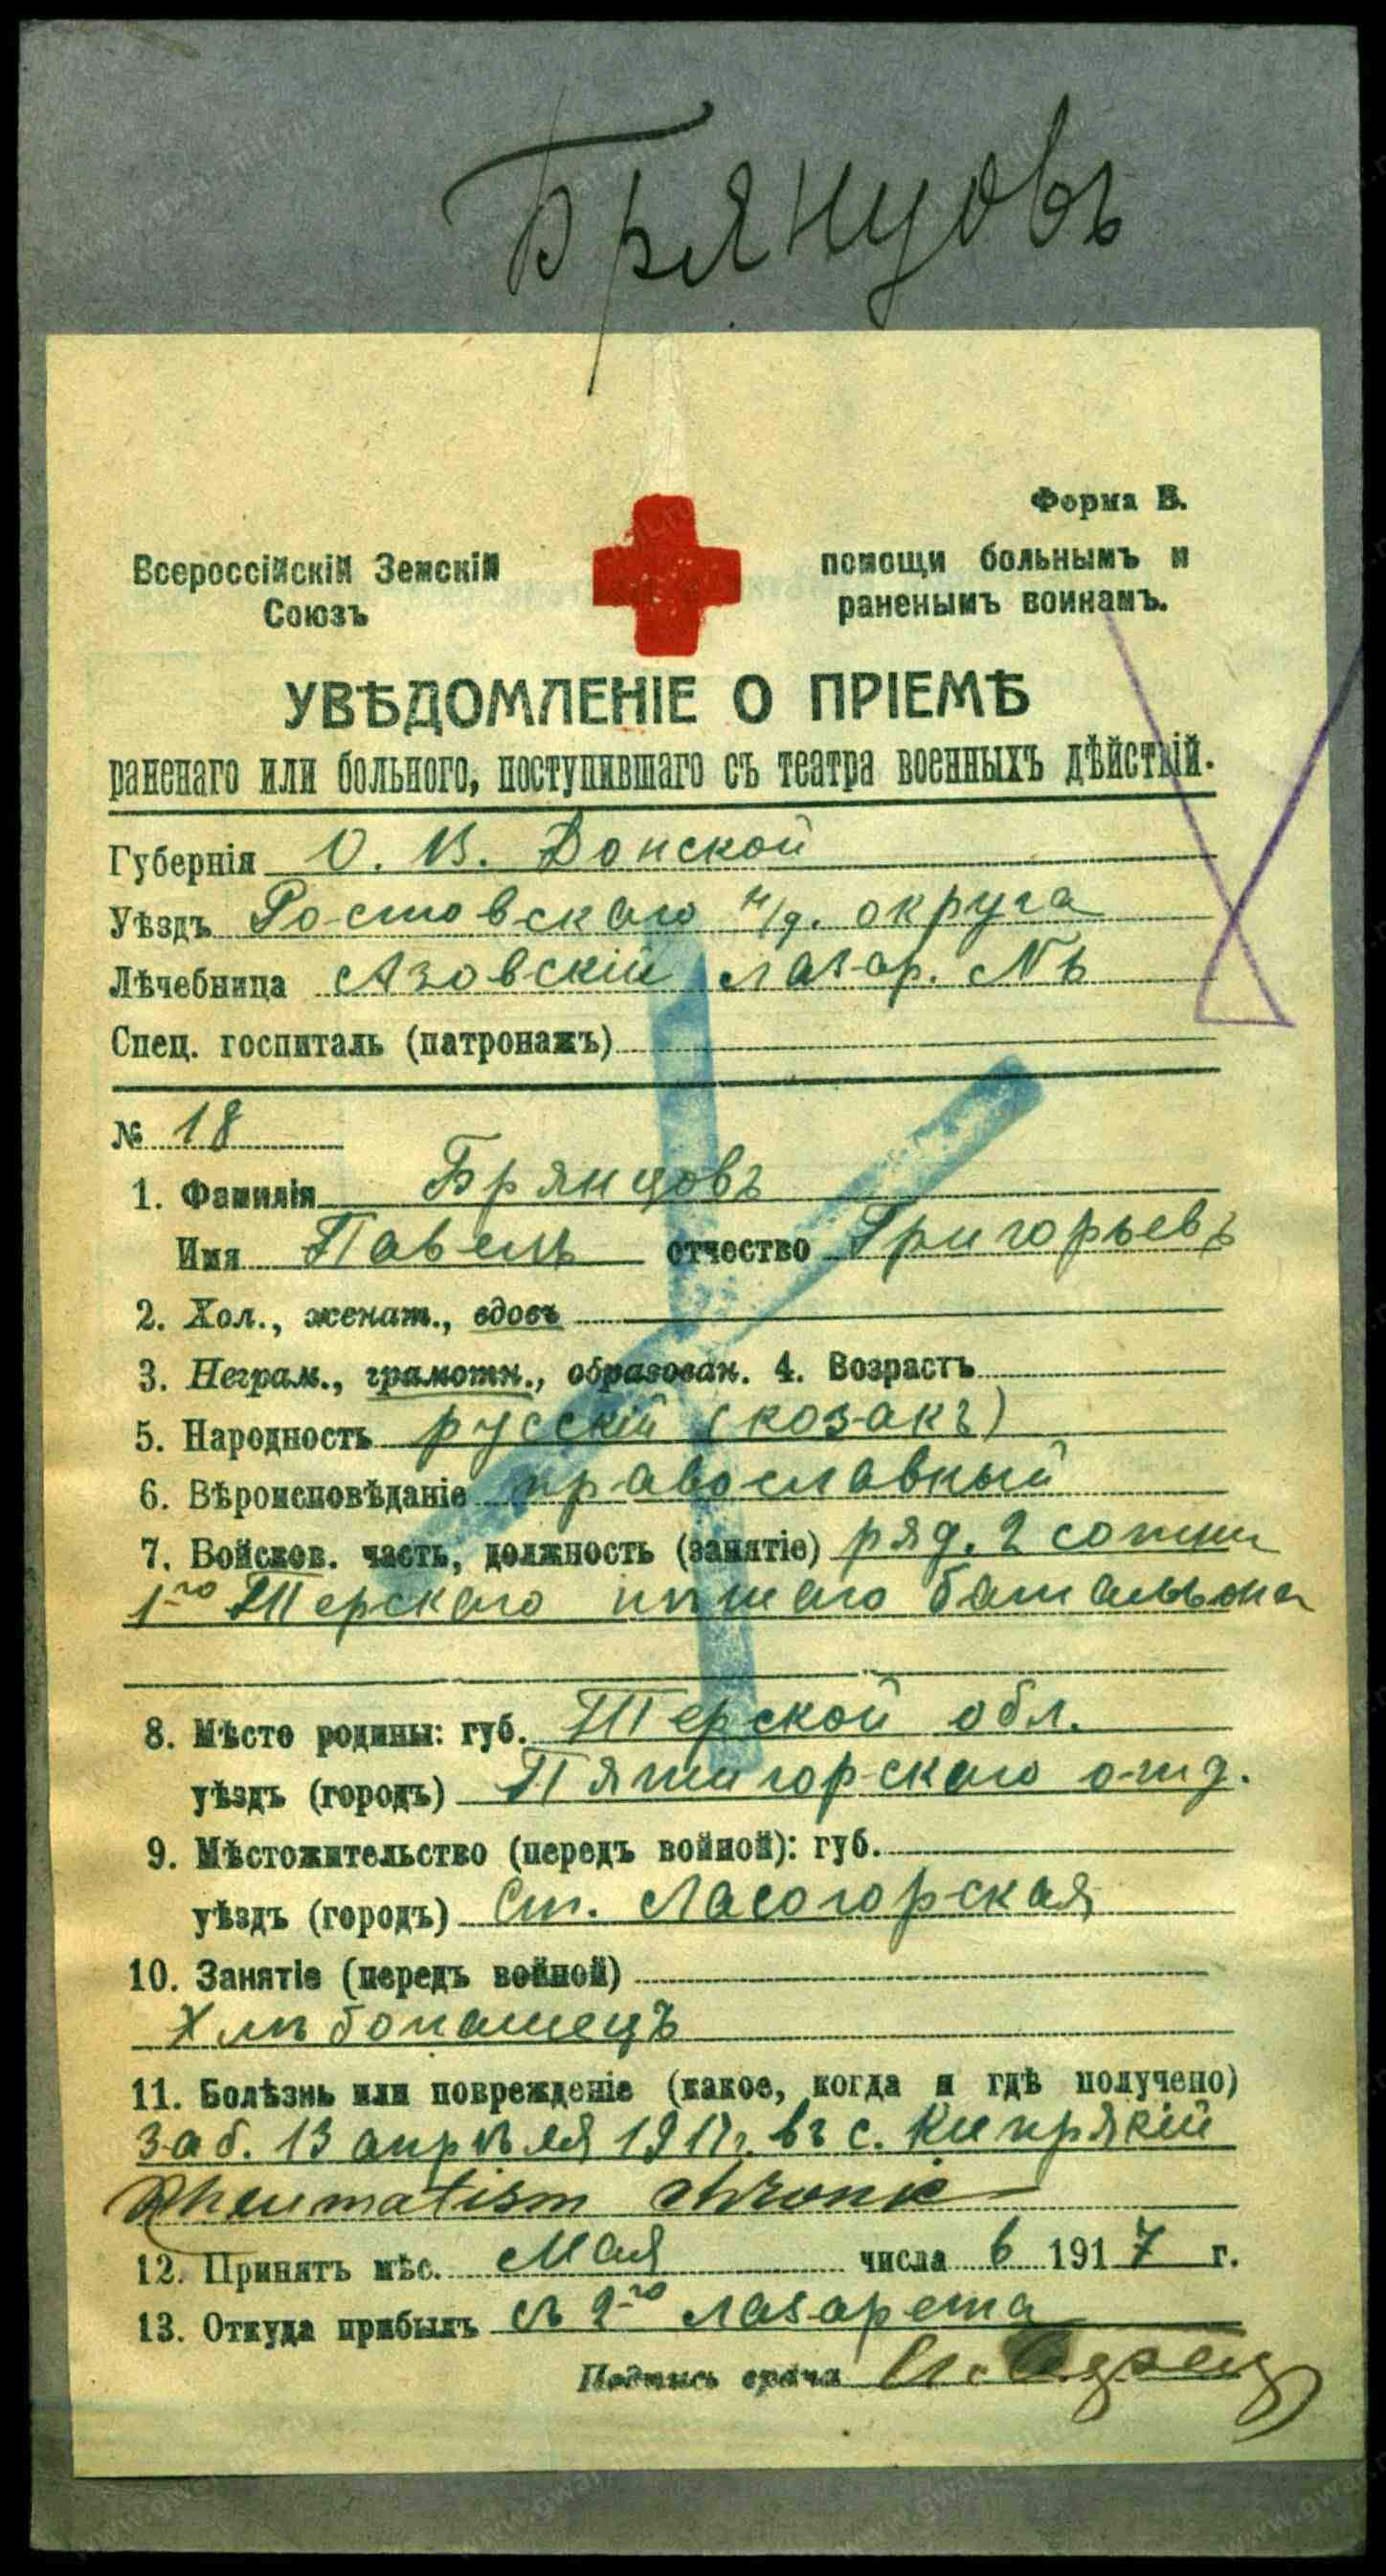 Брянцовъ
Форма В.
Всероссійскій Земскій
Союзъ
помощи больнымъ и
раненымъ воинамъ.
УВѢДОМЛЕНІЕ О ПРІЕМѢ
раненаго или больного, поступившаго съ театра военныхъ дѣйствій.
Губернія О. В. Донской
Уѣздъ Ростовскаго н/д. округа
Лѣчебница Азовскій лазар. №
Спец. госпиталь (патронажъ)
№ 18
1. Фамилія Брянцовъ
Имя Павелъ отчество Григорьевъ
2. Хол., женат., вдовъ
3. Неграм., грамотн., образован. 4. Возрастъ
5. Народность русскій (козакъ)
6. Вѣроисповѣданіе православный
7. Войсков. часть, должность (занятіе) ряд. 2 сотни
1го Терскаго пѣшаго батальона
8. Мѣсто родины: губ. Терской обл.
уѣздъ (городъ) Пятигорскаго отд.
9. Мѣстожительство (передъ войной): губ.
уѣздъ (городъ) Ст. Ласогорская
10. Занятіе (передъ войной)
Хлѣбопашецъ
11. Болѣзнь или поврежденіе (какое, когда и гдѣ получено)
Заб. 13 апрѣля 1917г. въ с.
Rheumatism chronic
12. Принятъ мѣс. Мая числа 6 1917 г.
13. Откуда прибылъ съ 2го лазарета
Подпись врача